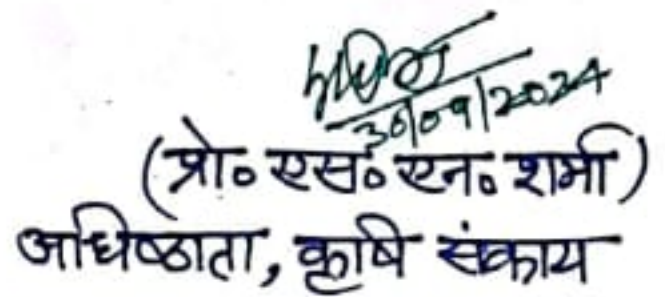 30/09/2024
(प्रो० एस० एन० शर्मा)
अधिष्ठाता, कृषि संकाय